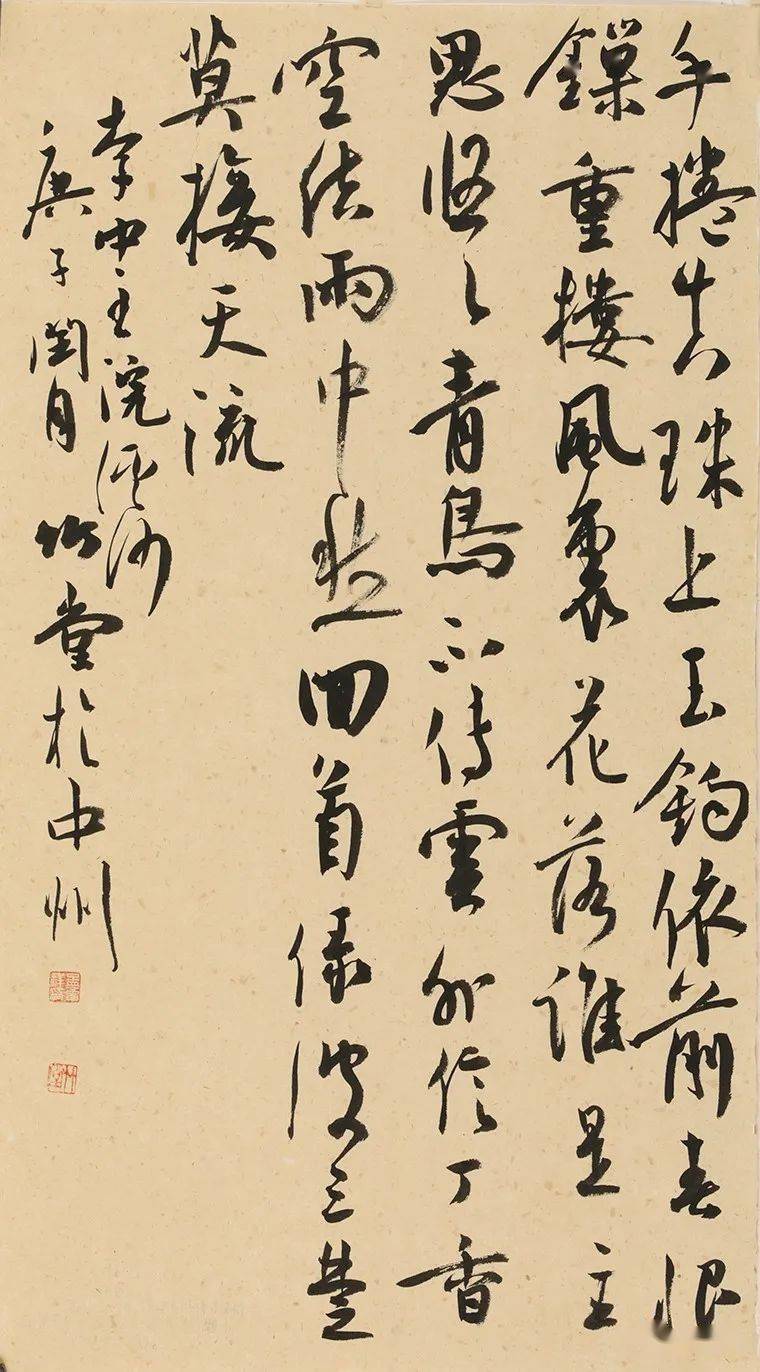 手捲真珠上玉鉤依前春恨
鏁重樓風裏花落誰是主
思悠々青鳥不傳雲外信丁香
空結雨中愁回首綠波三楚
莫接天流
李中主浣溪沙
庚子閏月竹堂於中州